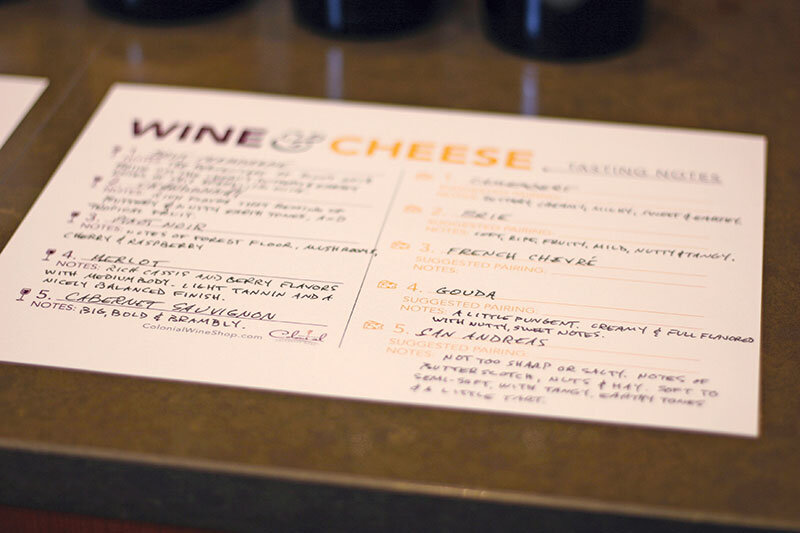 WINE & CHEESE TASTING NOTES
1.
NOTES:
2. CHARDONNAY
BUTTERY & NUTTY EARTH TONES, AND
TROPICAL FRUIT
3. PINOT NOIR
NOTES: NOTES OF FOREST FLOOR, MUSHROOM,
CHERRY & RASPBERRY
4. MERLOT
NOTES: RICH CASSIS AND BERRY FLAVORS
WITH MEDIUM BODY. LIGHT TANNIN AND A
NICELY BALANCED FINISH.
5. CABERNET SAUVIGNON
NOTES: BIG, BOLD & BRAMBLY.
ColonialWineShop.com Colonial
1. CAMEMBERT
SUGGESTED PAIRING:
NOTES: BUTTERY, CREAMY, MILKY, SWEET & EARTHY.
2. BRIE
SUGGESTED PAIRING:
NOTES: SOFT, RIPE, FRUITY, MILD, NUTTY & TANGY.
3. FRENCH CHEVRÉ
SUGGESTED PAIRING:
NOTES:
4. GOUDA
SUGGESTED PAIRING:
NOTES: A LITTLE PUNGENT. CREAMY & FULL FLAVORED
WITH NUTTY, SWEET NOTES.
5. SAN ANDREAS
SUGGESTED PAIRING:
NOTES: NOT TOO SHARP OR SALTY. NOTES OF
BUTTERSCOTCH, NUTS & HAY. SOFT TO
SEMI-SOFT, WITH TANGY, EARTHY TONES
& A LITTLE TART.